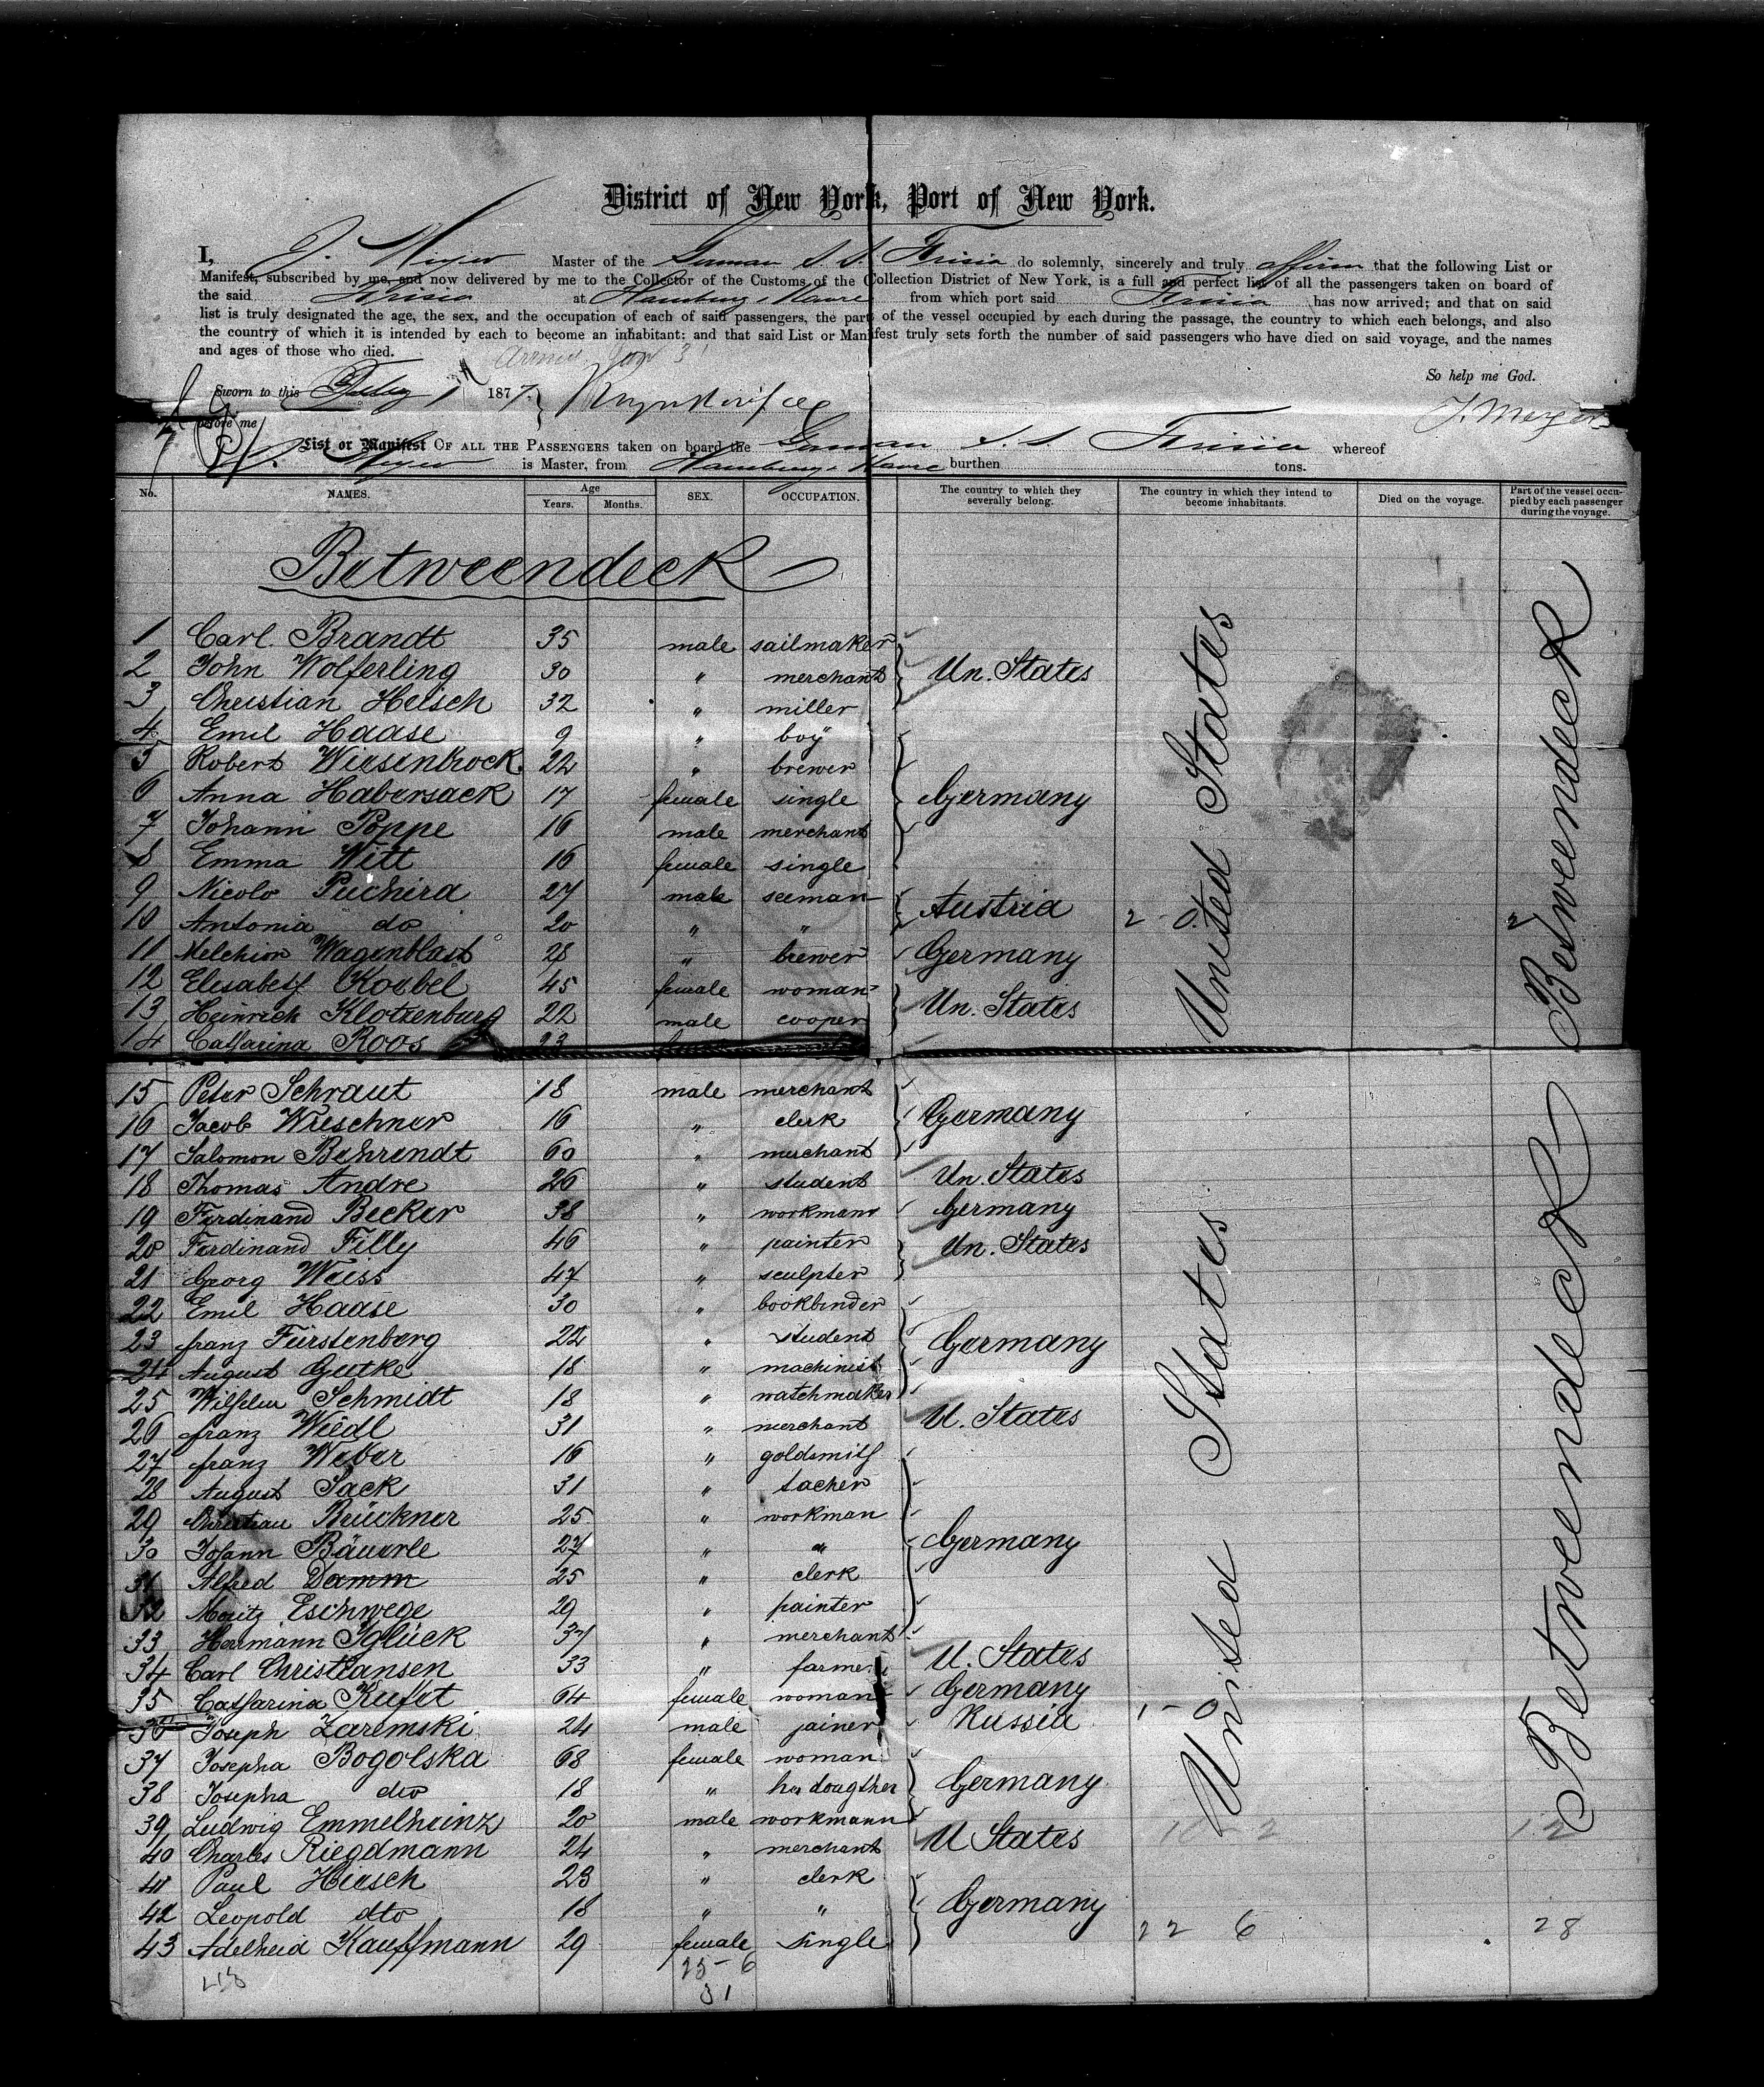 District of New York, Port of New York.
I, J. Meyer Master of the German S. S. Frisia do solemnly, sincerely and truly affirm that the following List or
Manifest, subscribed by me, and now delivered by me to the Collector of the Customs of the Collection District of New York, is a full and perfect list of all the passengers taken on board of
the said Frisia at Hamburg & Havre from which port said Frisia has now arrived; and that on said
list is truly designated the age, the sex, and the occupation of each of said passengers, the part of the vessel occupied by each during the passage, the country to which each belongs, and also
the country of which it is intended by each to become an inhabitant; and that said List or Manifest truly sets forth the number of said passengers who have died on said voyage, and the names
and ages of those who died.
So help me God.
Sworn to this Feby 1st 1877.
J. Meyer
before me
List or Manifest OF ALL THE PASSENGERS taken on board the German S. S. Frisia whereof
J. Meyer is Master, from Hamburg & Havre burthen tons.
No. NAMES. Age Years. Months. SEX. OCCUPATION. The country to which they severally belong. The country in which they intend to become inhabitants. Died on the voyage. Part of the vessel occupied by each passenger during the voyage.
Betweendeck
1 Carl Brandt 35 male sailmaker
2 John Wolferling 30 " merchant Un. States
3 Christian Heisch 32 " miller
4 Emil Haase 9 " boy
5 Robert Wiesenbrock 22 " brewer
6 Anna Habersack 17 female single Germany
7 Johann Poppe 16 male merchant
8 Emma Witt 16 female single
9 Nicolo Puchira 27 male seeman Austria
10 Antonia do 20 " " 2 - 0. 2
11 Melchior Wagenblast 28 " brewer Germany
12 Elisabeth Koebel 45 female woman Un. States
13 Heinrich Klotzenburg 22 male cooper
14 Catharina Roos 23
United States
Betweendeck
15 Peter Schraut 18 male merchant
16 Jacob Wieschner 16 " clerk Germany
17 Salomon Behrendt 60 " merchant
18 Thomas Andre 26 " student Un. States
19 Ferdinand Becker 38 " workmann Germany
20 Ferdinand Filly 46 " painter Un. States
21 Georg Weiss 47 " sculpter
22 Emil Haase 30 " bookbinder
23 Franz Fürstenberg 22 " student Germany
24 August Gutke 18 " machinist
25 Wilhelm Schmidt 18 " watchmaker
26 Franz Wiedl 31 " merchant U. States
27 Franz Weber 16 " goldsmith
28 August Sack 31 " tacher
29 Christian Brückner 25 " workman
30 Johann Bäuerle 27 " " Germany
31 Alfred Damm 25 " clerk
32 Moritz Eschwege 29 " painter
33 Hermann Iglück 37 " merchant
34 Carl Christiansen 33 " farmer U. States
35 Catharina Kufet 64 female woman Germany
36 Joseph Zaremski 24 male jainer Russia 1 - 0
37 Josepha Bogolska 68 female woman
38 Josepha dto 18 " her dougther Germany
39 Ludwig Emmelheinz 20 male workmann
40 Charles Riegdmann 24 " merchant U States 12
41 Paul Hirsch 23 " clerk
42 Leopold dto 18 " " Germany
43 Adelheid Kauffmann 29 female single 22 6 28
United States
Betweendeck
25 - 6
31